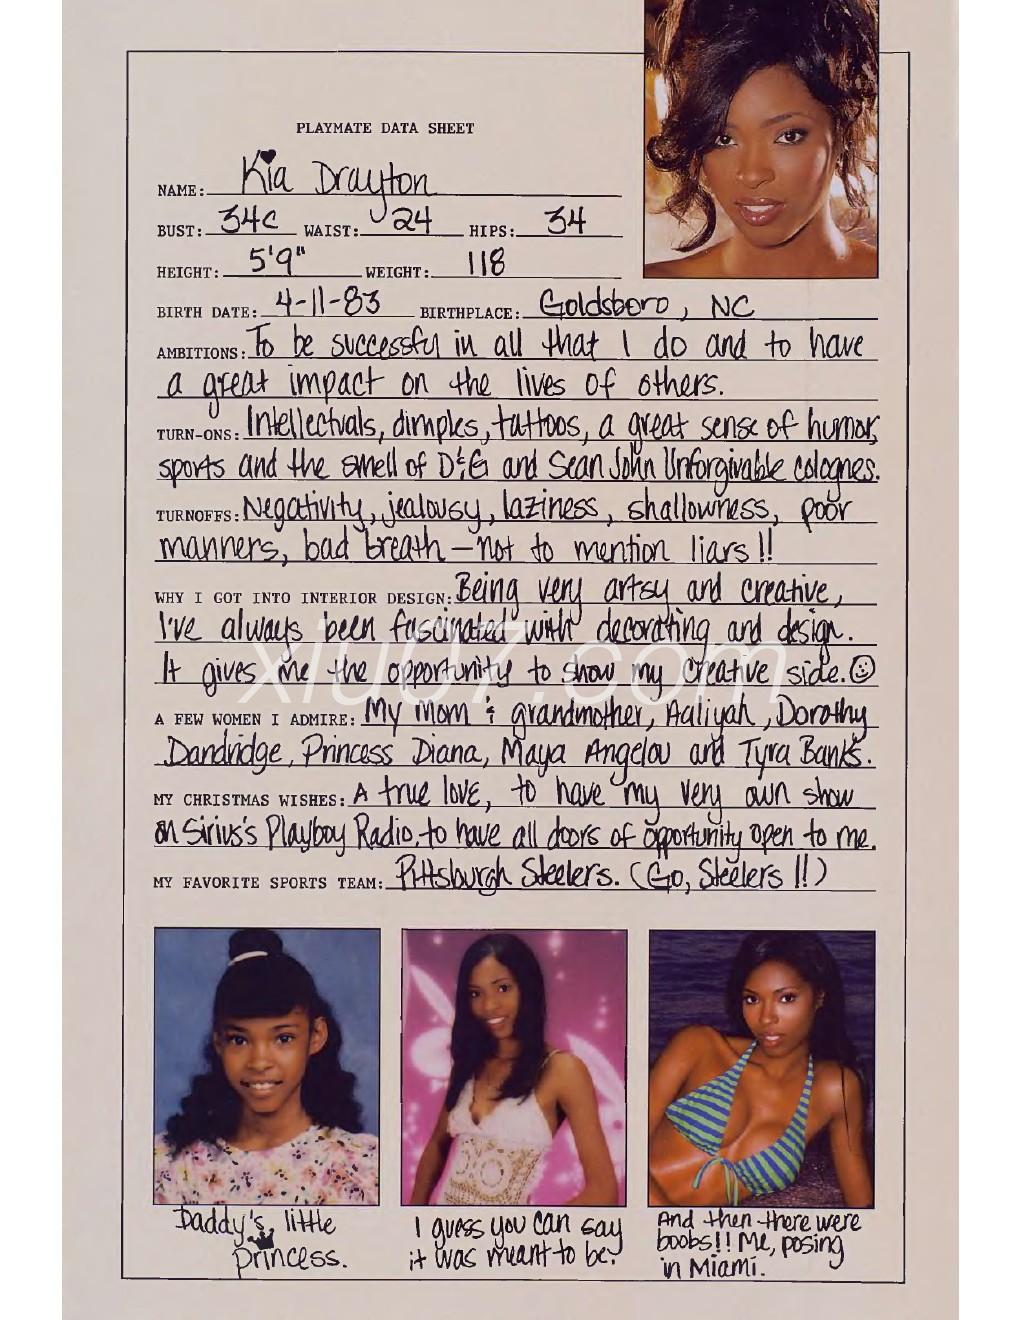 PLAYMATE DATA SHEET
NAME: Kia Drayton
BUST: 34C WAIST: 24 HIPS: 34
HEIGHT: 5'9" WEIGHT: 118
BIRTH DATE: 4-11-83 BIRTHPLACE: Goldsboro, NC
AMBITIONS: To be successful in all that I do and to have
a great impact on the lives of others.
TURN-ONS: Intellectuals, dimples, tattoos, a great sense of humor,
sports and the smell of D&G and Sean John Unforgivable colognes.
TURNOFFS: Negativity, jealousy, laziness, shallowness, poor
manners, bad breath—not to mention liars!!
WHY I GOT INTO INTERIOR DESIGN: Being very artsy and creative,
I've always been fascinated with decorating and design.
It gives me the opportunity to show my creative side.☺
xiu07.com
A FEW WOMEN I ADMIRE: My mom & grandmother, Aaliyah, Dorothy
Dandridge, Princess Diana, Maya Angelou and Tyra Banks.
MY CHRISTMAS WISHES: A true love, to have my very own show
on Sirius's Playboy Radio, to have all doors of opportunity open to me.
MY FAVORITE SPORTS TEAM: Pittsburgh Steelers. (Go, Steelers!!)
Daddy's little
princess.
I guess you can say
it was meant to be!
And then there were
boobs!! Me, posing
in Miami.